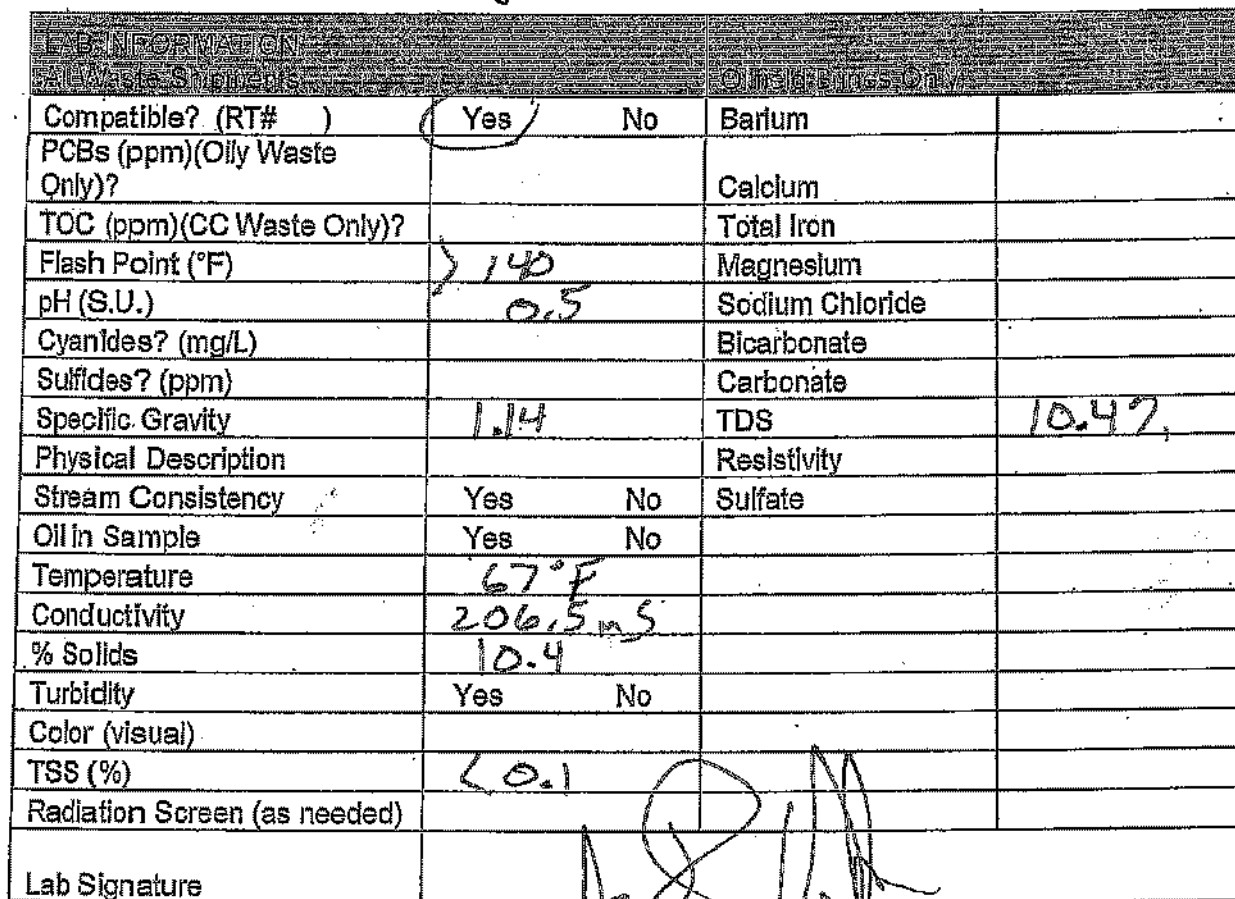 LAB INFORMATION
All Waste Shipments Oilfield Brines Only
Compatible? (RT# ) Yes No Barium
PCBs (ppm)(Oily Waste
Only)? Calcium
TOC (ppm)(CC Waste Only)? Total Iron
Flash Point (°F) > 140 Magnesium
pH (S.U.) 0.5 Sodium Chloride
Cyanides? (mg/L) Bicarbonate
Sulfides? (ppm) Carbonate
Specific Gravity 1.14 TDS 10.4
Physical Description Resistivity
Stream Consistency Yes No Sulfate
Oil in Sample Yes No
Temperature 67°F
Conductivity 206.5 mS
% Solids 10.4
Turbidity Yes No
Color (visual)
TSS (%) < 0.1
Radiation Screen (as needed)
Lab Signature